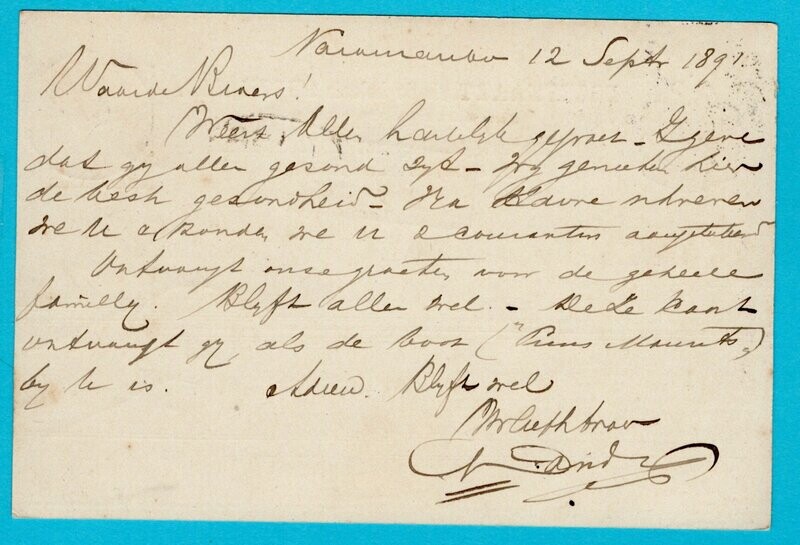 12 Sept 1891.
Waarde Broers!
Weest Allen hartelijk gegroet -
dat gij allen gezond zijt - Wij genieten hier
de beste gezondheid - Havre schreven
we U & zonden we U 2 couranten
Ontvangt onze groeten voor de geheele
familly. Blijft allen wel. - Deze kaart
ontvangt gij, als de boot ("Prins Maurits")
by U is. Adieu. Blijft wel